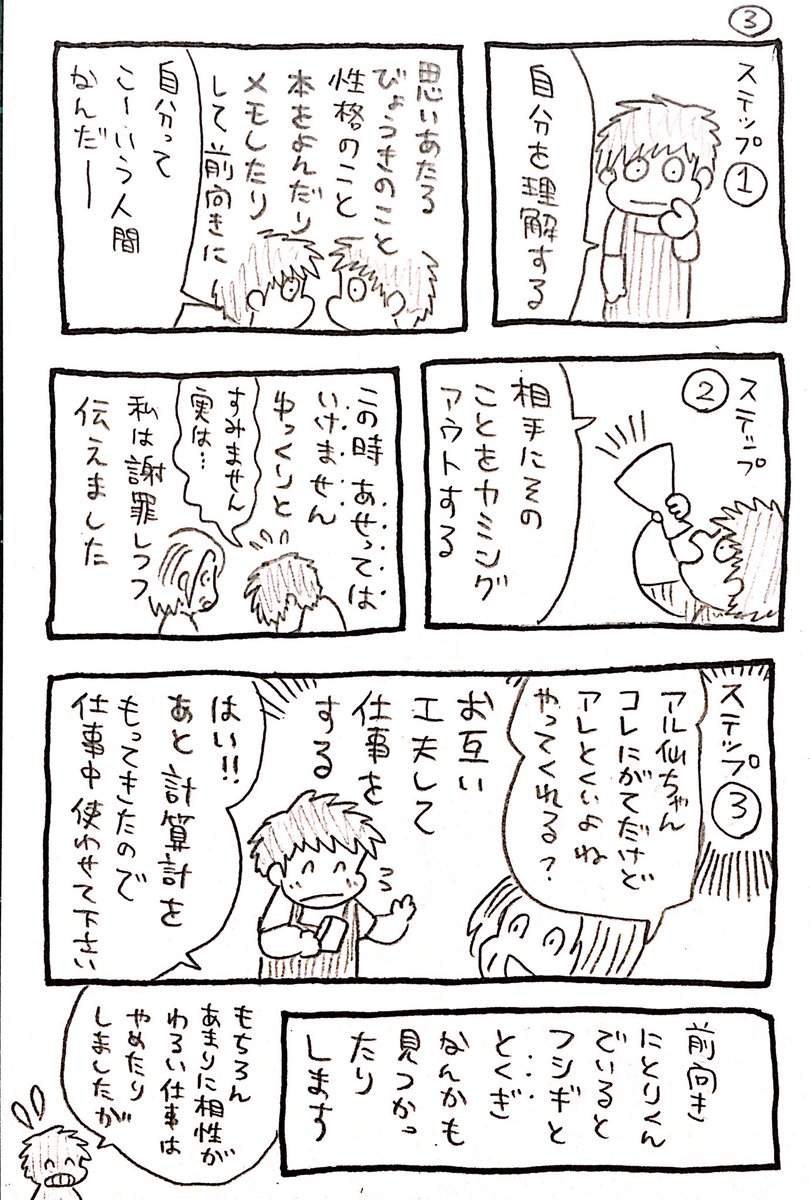 ③
ステップ①
自分を理解する
思いあたる
びょうきのこと
性格のこと
本をよんだり
メモしたり
して前向きに
自分って
こーいう人間
なんだー
ステップ
②
相手にその
ことをカミング
アウトする
この時あせっては
いけません
ゆっくりと
すみません
実は…
私は謝罪しつつ
伝えました
ステップ③
アル仙ちゃん
コレにがてだけど
アレとくいよね
やってくれる?
お互い
工夫して
仕事を
する
はい!!
あと計算計を
もってきたので
仕事中使わせて下さい
前向き
にとりくん
でいると
フシギと
とくぎ
なんかも
見つかっ
たり
します
もちろん
あまりに相性が
わるい仕事は
やめたり
しましたが